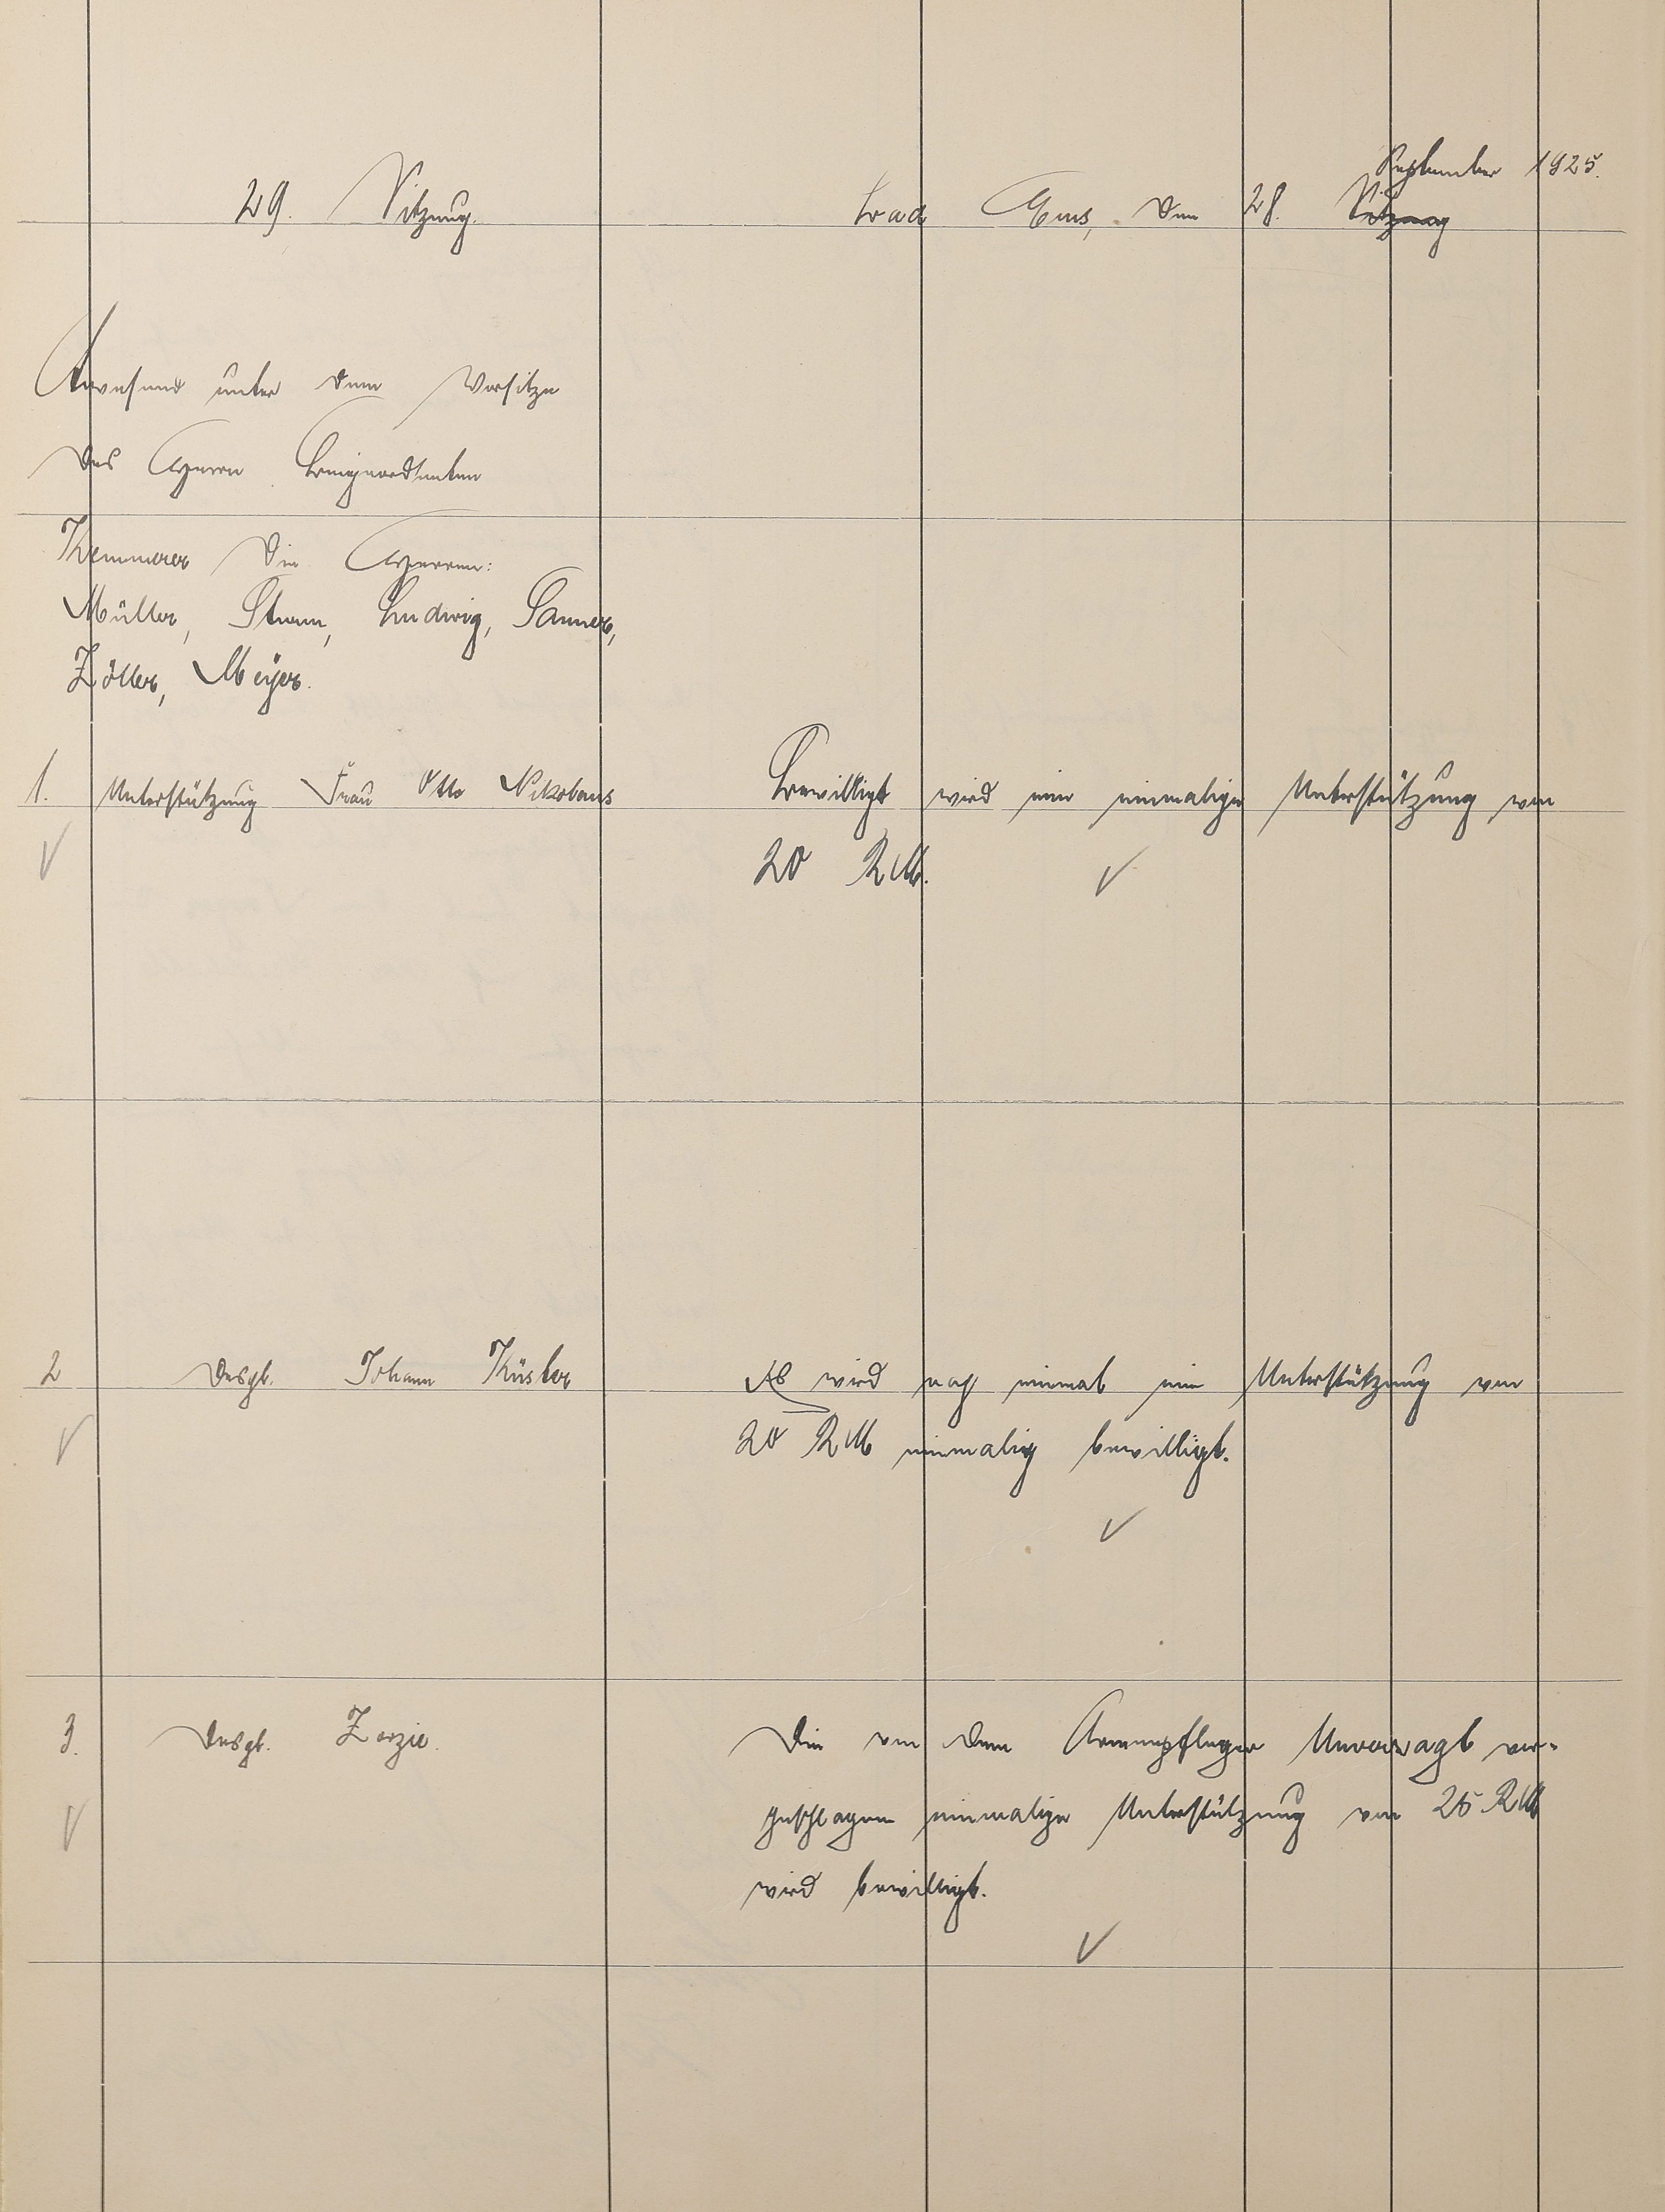 29. Sitzung. Bad Ems, den 28. Sitzung September 1925.
Anwesend unter dem Vorsitze
des Herrn Beigeordneten
Kemmerer die Herren:
Müller, Sturm, Ludwig, Sanner,
Zöller, Meyer.
1. Unterstützung Frau Otto Nikolaus Bewilligt wird eine einmalige Unterstützung von
20 RM.
2 Desgl. Johann Küster Es wird noch einmal eine Unterstützung von
20 RM einmalig bewilligt.
3. Desgl. Zerzie. Die von dem Armenpfleger Unverzagt vor-
geschlagene einmalige Unterstützung von 25 RM
wird bewilligt.